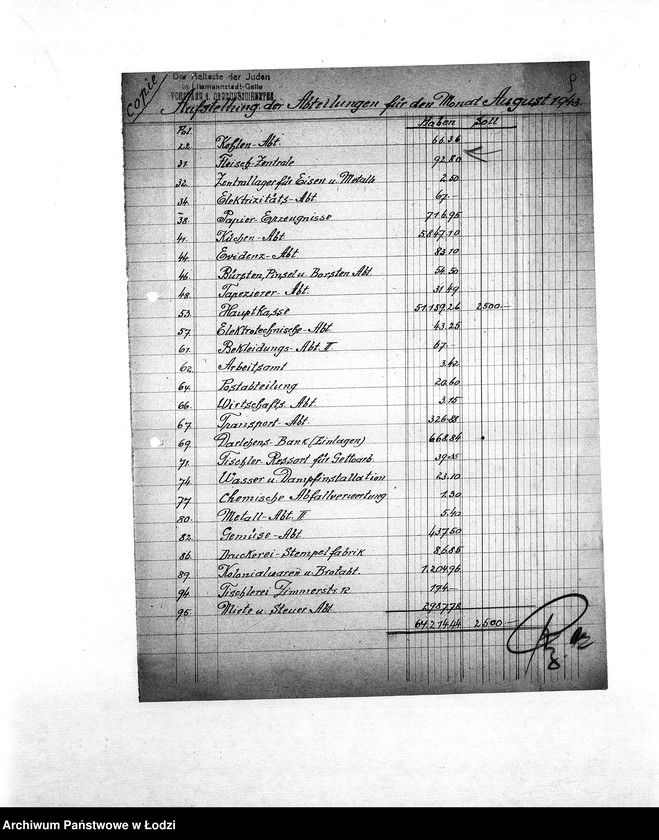 Copie
Der Aelteste der Juden
in Litzmannstadt-Getto
VORSTAND d. ORDNUNGSDIENSTES
Aufstellung der Abteilungen für den Monat August 1943.
Haben Soll
Pol.
22. Kohlen-Abt. 66.36
31. Fleisch-Zentrale 92.80
32. Zentrallager für Eisen u. Metalle 2.50
34. Elektrizitäts-Abt. 67.—
38. Papier-Erzeugnisse 716.95
41. Küchen-Abt. 5.847.10
44. Evidenz-Abt. 83.10
46. Bürsten, Pinsel u. Borsten Abt. 54.50
48. Tapezierer-Abt. 31.49
53. Hauptkasse 51.159.26 2500.—
57. Elektrotechnische-Abt. 43.25
61. Bekleidungs-Abt. II. 67.—
62. Arbeitsamt 3.42
64. Postabteilung 20.60
66. Wirtschafts. Abt. 3.15
67. Transport-Abt. 326.88
69. Darlehens-Bank (Einlagen) 668.84
71. Tischler-Ressort für Gettoarb. 39.35
74. Wasser u. Dampfinstallation 23.10
77. Chemische Abfallverwertung 1.30
80. Metall-Abt. II 5.40
82. Gemüse-Abt. 437.50
86. Druckerei-Stempelfabrik 86.85
89. Kolonialwaren u. Brotabt. 1.204.96
94. Tischlerei Zimmerstr. 12 174.—
95. Miete u. Steuer Abt. 2987.78
64.214.44 2500.—
Archiwum Państwowe w Łodzi